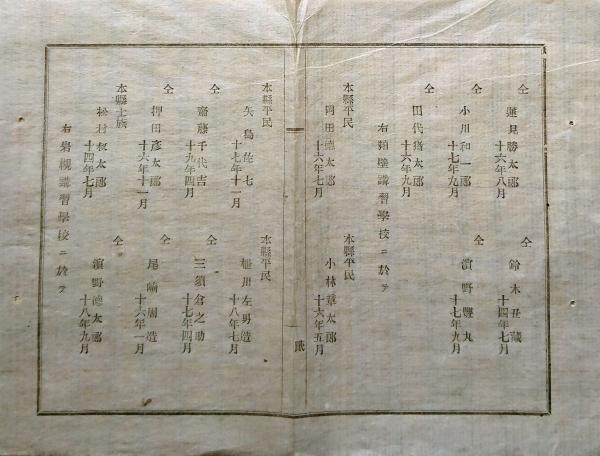 仝
蓮見勝太郎
十六年八月
仝
鈴木丑藏
十四年七月
仝
小川和一郎
十七年九月
仝
濵野豐丸
十七年九月
仝
田代猶太郎
十六年九月
右講習學校ニ於テ
本縣平民
岡田德太郎
十六年七月
本縣平民
小林章太郎
十六年五月
本縣平民
矢島佐七
十七年十一月
本縣平民
川左男造
十八年七月
仝
齋藤千代吉
十九年四月
仝
三須倉之助
十七年四月
仝
押田彦太郎
十六年十一月
仝
尾崎周造
十六年一月
本縣士族
松村叔太郎
十四年七月
仝
濵野德太郎
十八年九月
右岩槻講習學校ニ於テ